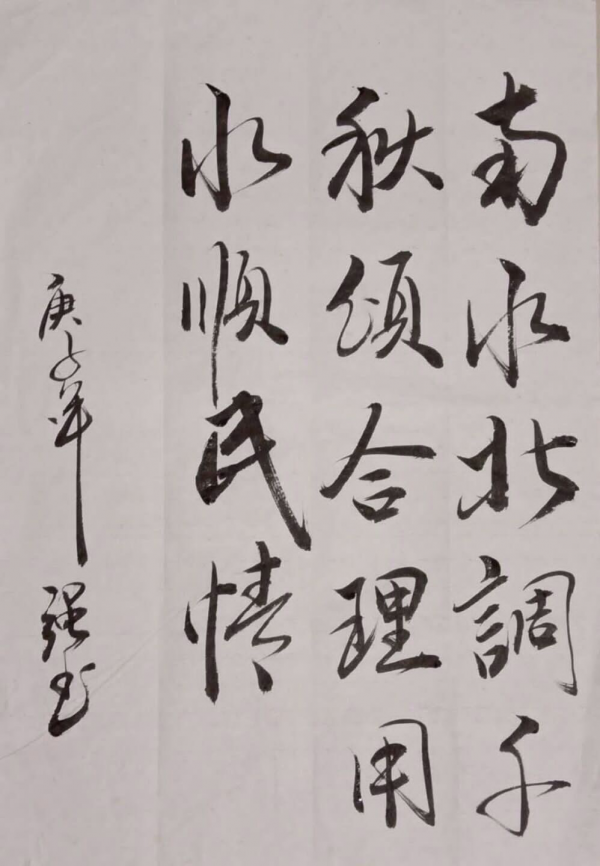 南水北調千
秋頌合理用
水順民情
庚子年強书